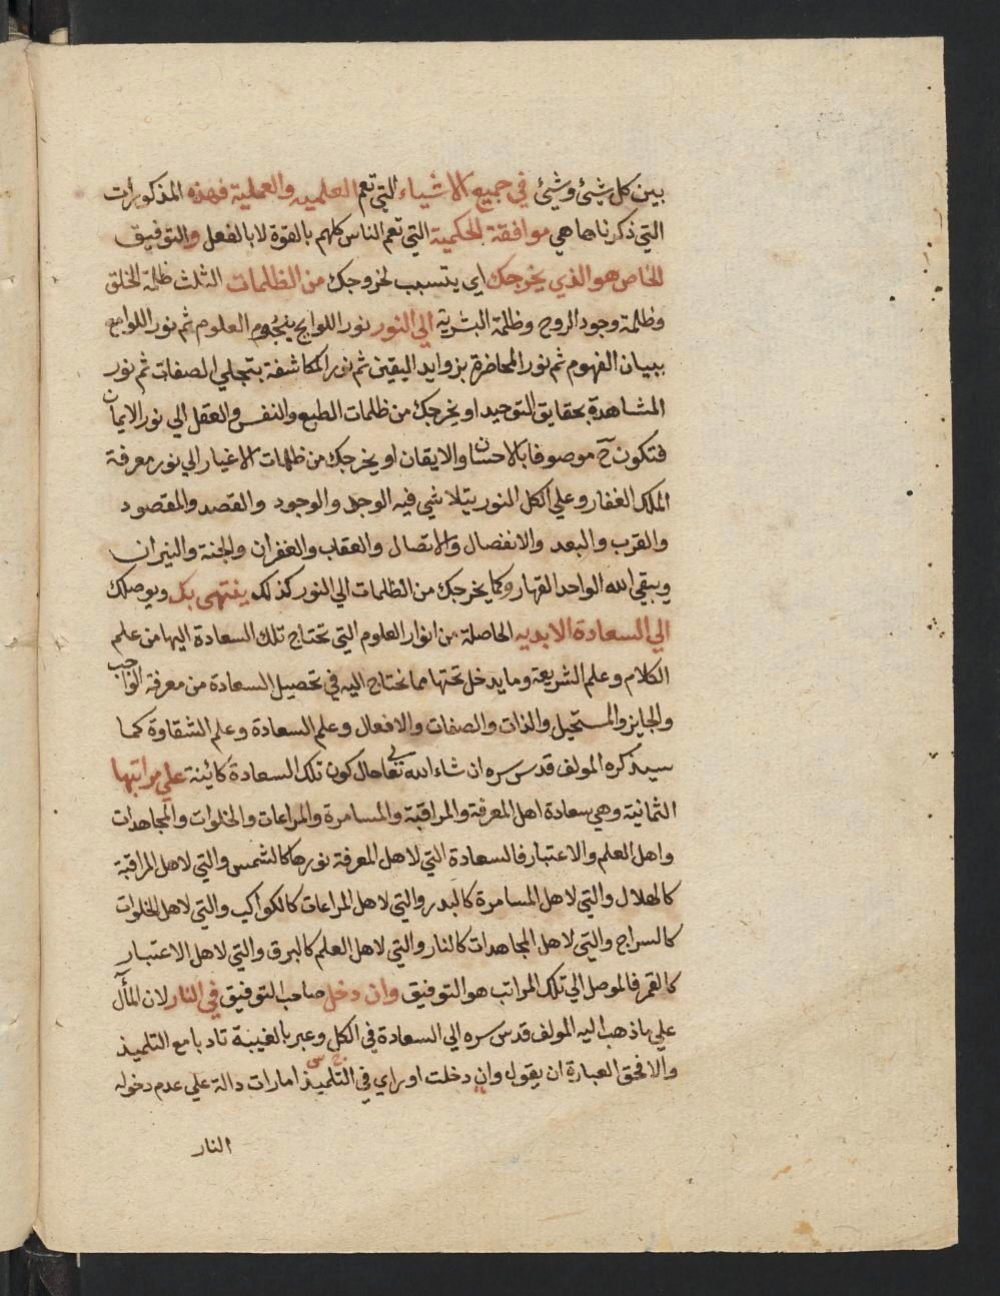 بين كل شيئ وشيئ في جميع الاشياء التي تعم العلميه والعملية فهذه المذكورات
التي ذكرناها هي موافقة الحكمية التي تعم الناس كلهم بالقوة لا بالفعل والتوفيق
الخاص هو الذي يخرجك اي يتسبب لخروجك من الظلمات الثلث ظلمة الخلق
وظلمة وجود الروح وظلمة البشريه الي النور نور اللوايح بنجوم العلوم ثم نور اللوامع
ببيان الفهوم ثم نور المحاضرة بزوايد اليقين ثم نور المكاشفة بتجلي الصفات ثم نور
المشاهدة بحقايق التوحيد او يخرجك من ظلمات الطبع والنفس والعقل الي نور الايمان
فتكون ح موصوفا بالاحسان والايقان او يخرجك من ظلمات الاغيار الي نور معرفة
الملك الغفار وعلي الكل النور يتلاشي فيه الوجل والوجود والقصد والمقصود
والقرب والبعد والانفصال والاتصال والعقاب والغفران والجنة والنيران
ويبقي الله الواحد القهار وكما يخرجك من الظلمات الي النور كذلك ينتهي بك ويوصلك
الي السعادة الابديه الحاصلة من انوار العلوم التي تحتاج تلك السعادة اليها من علم
الكلام وعلم الشريعة وما يدخل تحتها مما نحتاج اليه في تحصيل السعادة من معرفة الواجب
والجايز والمستحيل والذات والصفات والافعال وعلم السعادة وعلم الشقاوة كما
سيذكره المولف قدس سره ان شاء الله تعالي حال كون تلك السعادة كائنة علي مراتبها
الثمانية وهي سعادة اهل المعرفة والمراقبة والمسامرة والمراعات والخلوات والمجاهدات
واهل العلم والاعتبار فالسعادة التي لاهل المعرفة نورها كالشمس والتي لاهل المراقبة
كالهلال والتي لاهل المسامرة كالبدر والتي لاهل المراعات كالكواكب والتي لاهل الخلوات
كالسراج والتي لاهل المجاهدات كالنار والتي لاهل العلم كالبرق والتي لاهل الاعتبار
كالقمر فالموصل الي تلك المراتب هو التوفيق وان دخل صاحب التوفيق في النار لان المآل
علي ما ذهب اليه المولف قدس سره الي السعادة في الكل وعبر بالغيبة تادبا مع التلميذ
والا فحق العبارة ان يقول وان دخلت او راي في التلميذ امارات دالة علي عدم دخوله
النار